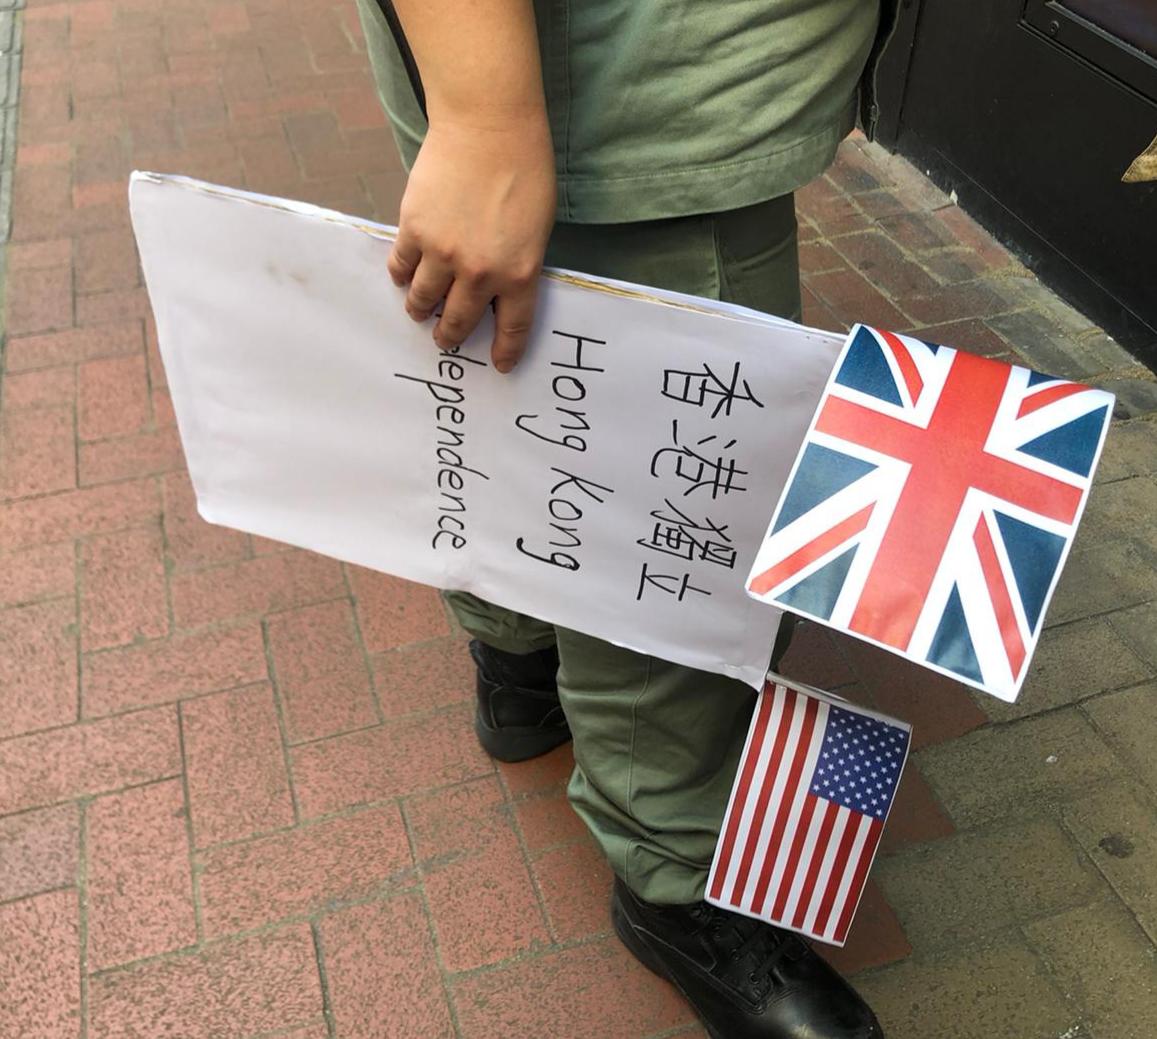 香港獨立
Hong Kong
dependence